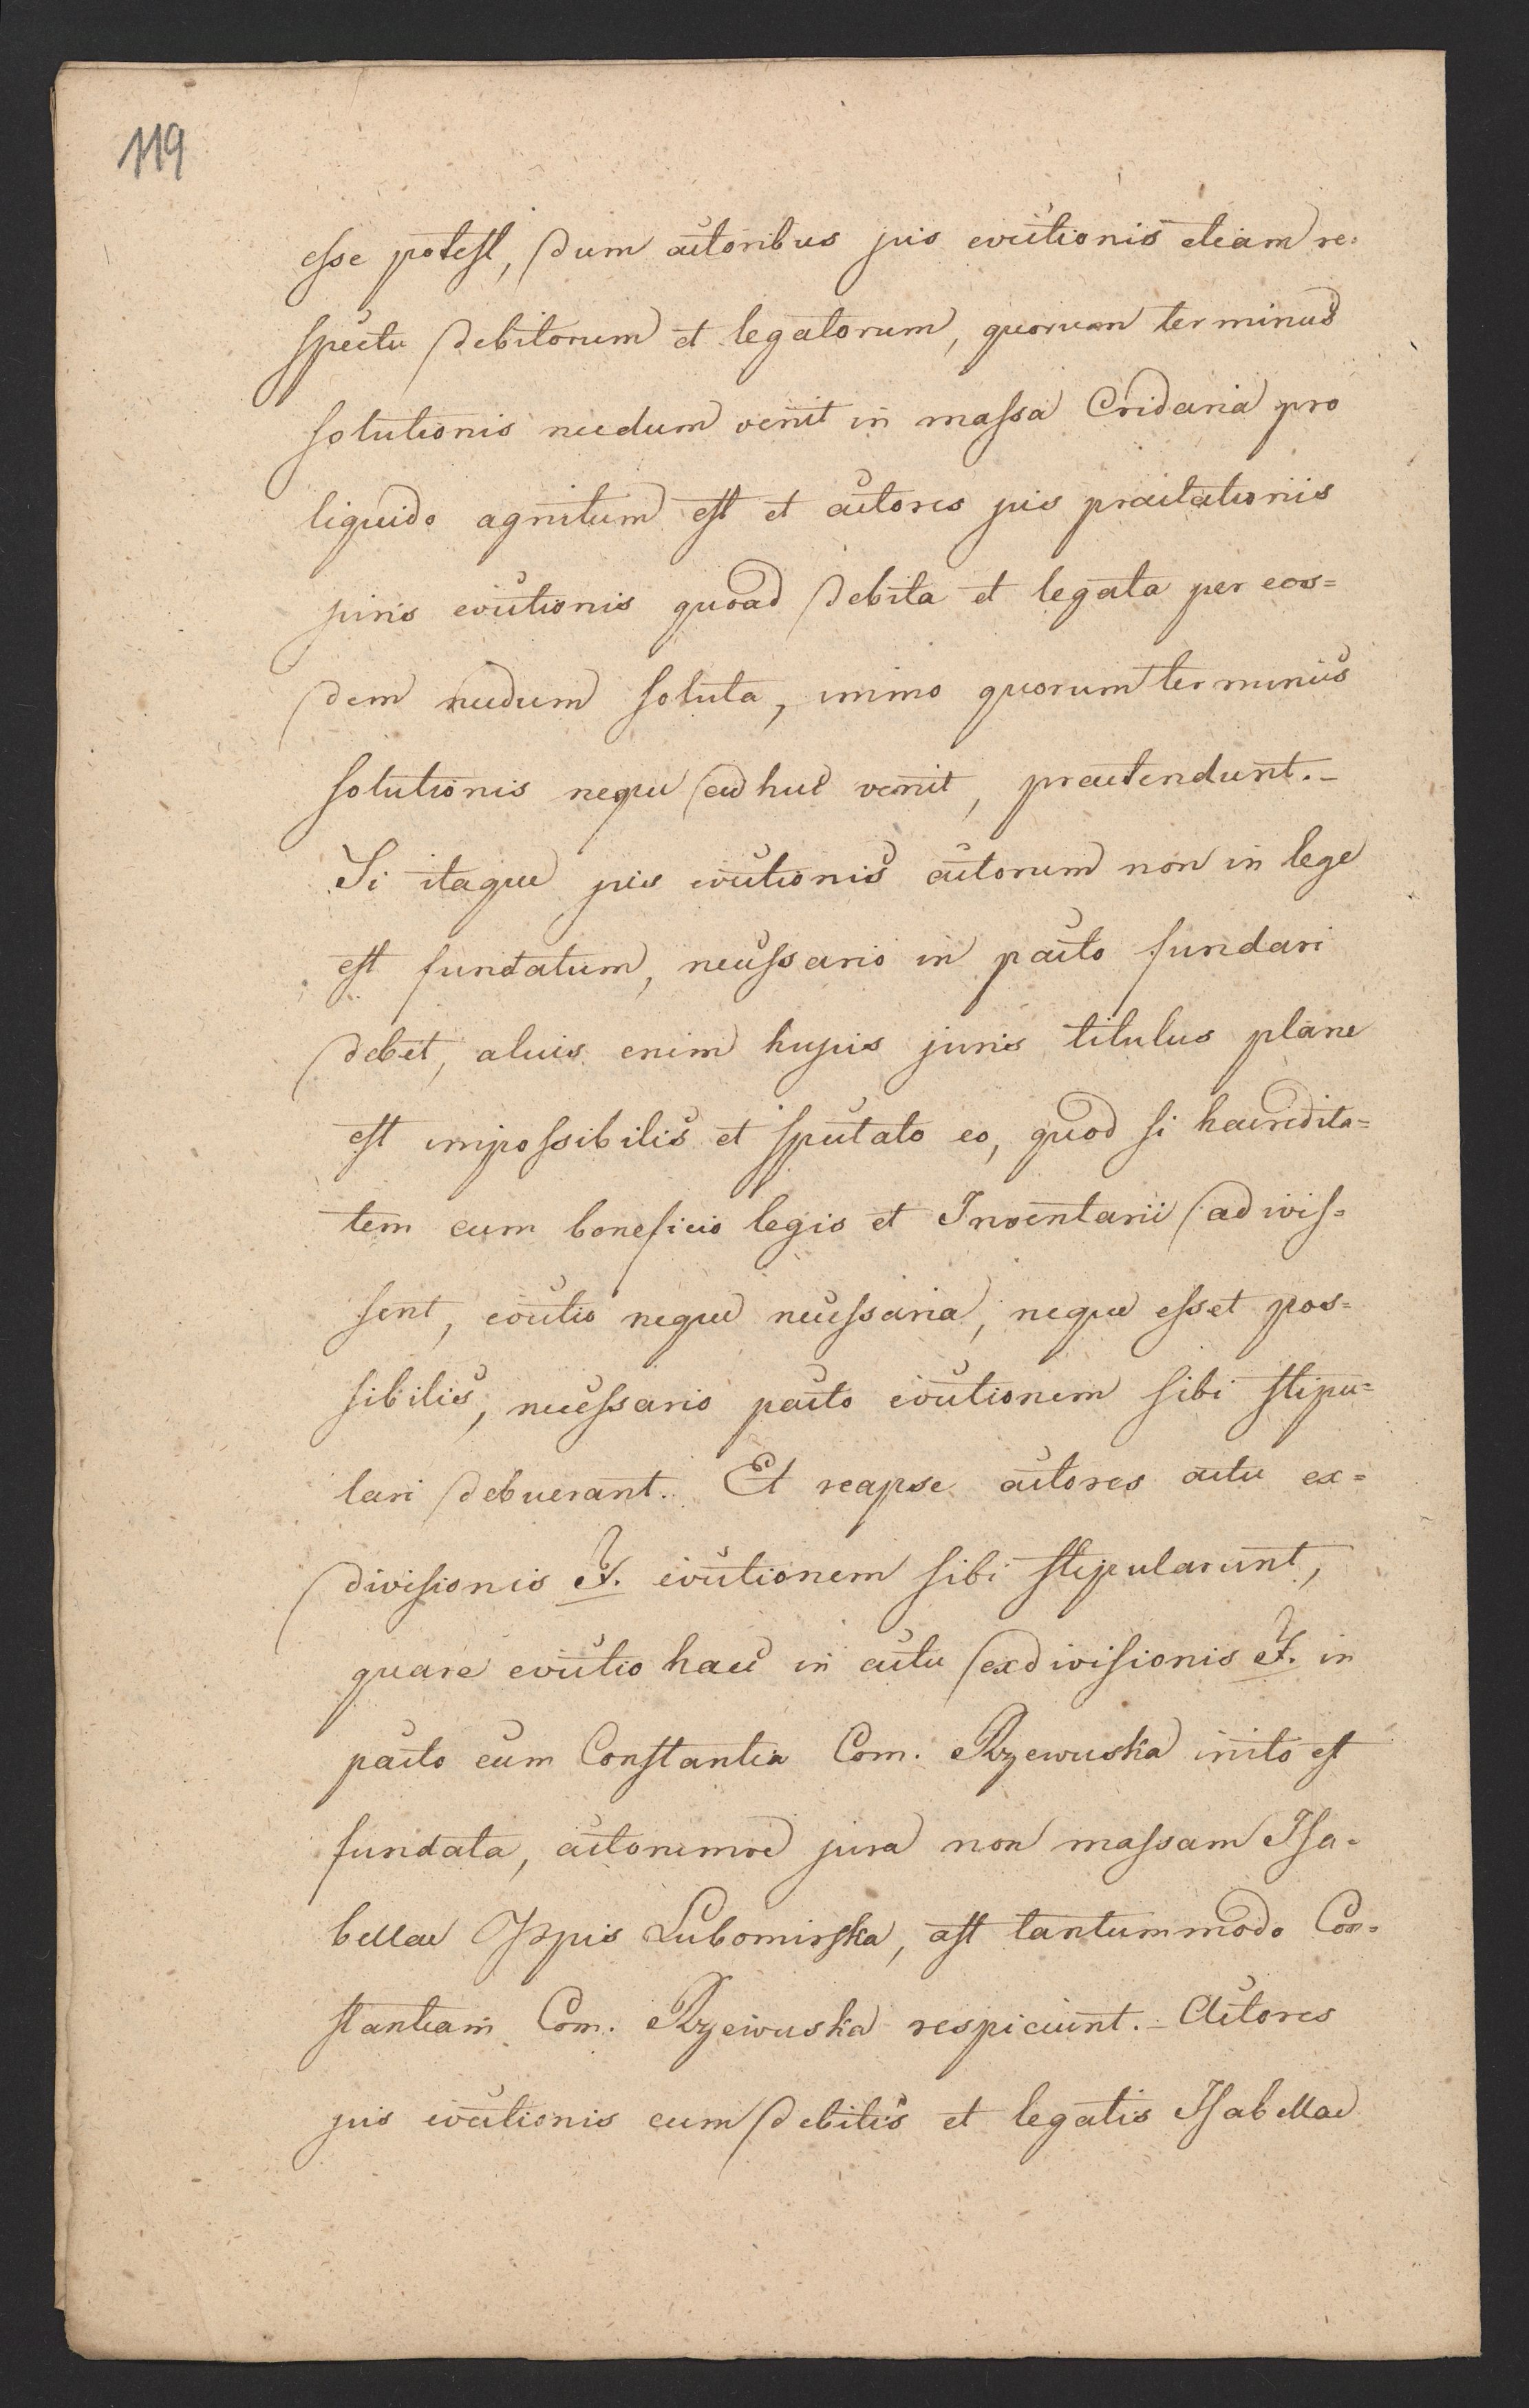 119
esse potest, dum actoribus jus evictionis etiam re=
spectu debitorum et legatorum, quorum terminus
solutionis necdum venit in massa Cridaria pro
liquido agnitum est et actores jus praetationis
juris evictionis quoad debita et legata per eos=
dem necdum soluta, immo quorum terminus
solutionis neque adhuc venit, praetendunt.-
Si itaque jus evictionis actorum non in lege
est fundatum, necessario in pacto fundari
debet, alius enim hujus juris titulus plane
est impossibilis et spectato eo, quod si haeredita=
tem cum beneficio legis et Inventarii adivis=
sent, evictio neque necessaria, neque esset pos=
sibilis, necessario pacto evictionem sibi stipu=
lari debuerant. Et reapse actores actu ex=
divisionis F. evictionem sibi stipularunt,
quare evictio haec in actu exdivisionis F. in
pacto cum Constantia Com. Rzewuska inito est
fundata, actorumve jura non massam Isa=
bellae Ppis Lubomirska, ast tantummodo Con=
stantiam Com. Rzewuska respiciunt.- Actores
jus evictionis cum debitis et legatis Isabellae